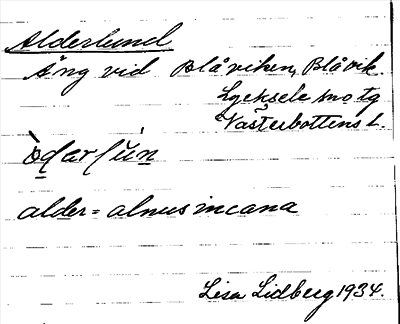 Alderlund
Äng vid Blåviken, Blåvik.
Lycksele sn o tg
Västerbottens l.
alder = alnus incana
Lisa Lidberg 1934.